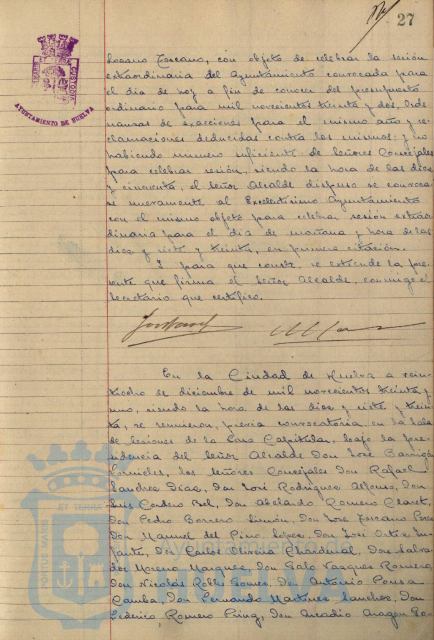 27
AYUNTAMIENTO DE HUELVA
Toscano, con objeto de celebrar la sesión
extraordinaria del Ayuntamiento convocada para
el día de hoy a fin de conocer del presupuesto
ordinario para mil novecientos treinta y dos, Orde
nanzas de exacciones para el mismo año y re
clamaciones deducidas contra los mismos; y no
habiendo numero suficiente de Señores Concejales
para celebrar sesión, siendo la hora de las diez
y cincuenta, el Señor Alcalde dispuso se convoca
se nuevamente al Excelentísimo Ayuntamiento
con el mismo objeto para celebrar sesión extraor
dinaria para el día de mañana y hora de las
diez y siete y treinta, en primera citación.
Y para que conste, se extiende la pre
sente que firma el Señor Alcalde, conmigo el
Secretario que certifico.
En la Ciudad de Huelva a vein
tiocho de diciembre de mil novecientos treinta y
uno, siendo la hora de las diez y siete y trein
ta, se reunieron, previa convocatoria, en la Sala
de sesiones de la Casa Capitular, bajo la pre
sidencia del Señor Alcalde Don José Barrigón
los Señores Concejales Don Rafael
Sanchez Díaz, Don José Rodríguez Alfonso, Don
Luis Cordero Bel, Don Abelardo Romero Claret,
Don Pedro Borrero Limón, Don José Toscano Perez
Don Manuel del Pino López, Don José Ortiz In
fante, Don Carlos Oliveira Chardenal, Don Salva
dor Moreno Marquez, Don Galo Vazquez Romero,
Don Nicolás Robles Gomez, Don Antonio Pousa
Camba, Don Fernando Martinez Sanchez, Don
Federico Romero Don Arcadio Aragón Go
PORTUS MARIS ET TERRAE